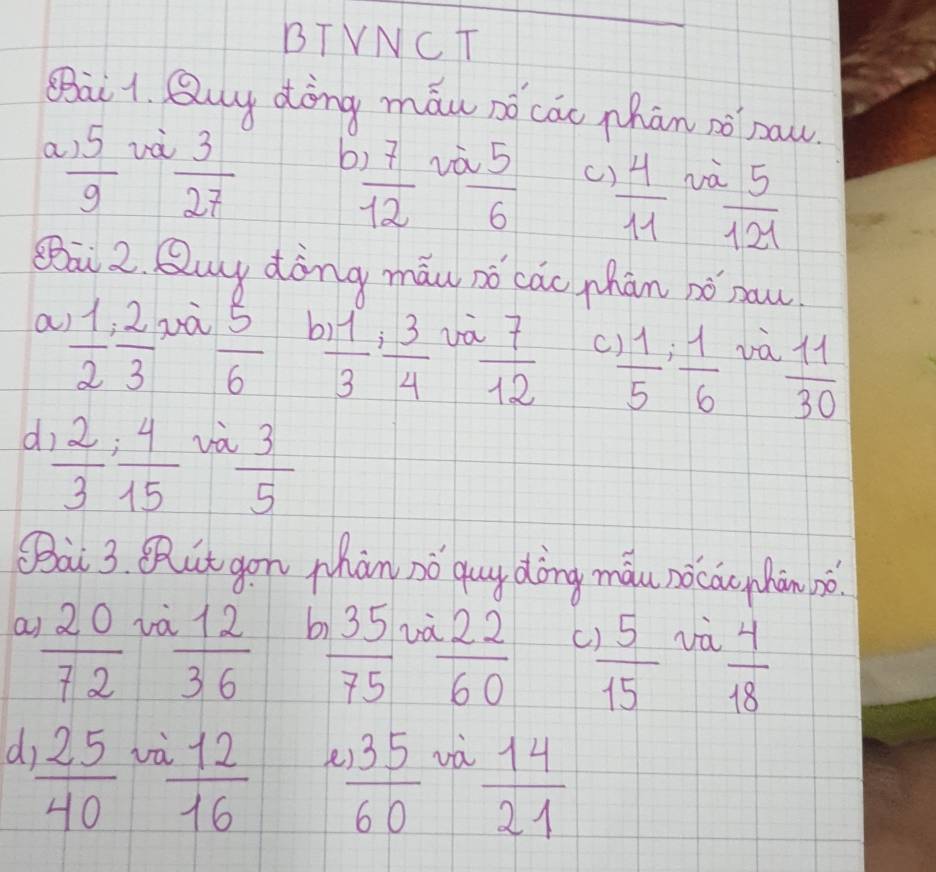 BTVNCT
Bài 1. Quy đồng mẫu số các phân số sau.
a) 5/9 và 3/27 b) 7/12 và 5/6 c) 4/11 và 5/121
Bài 2. Quy đồng mẫu số các phân số sau.
a) 1/2; 2/3 và 5/6 b) 1/3; 3/4 và 7/12 c) 1/5; 1/6 và 11/30
d) 2/3; 4/15 và 3/5
Bài 3. Rút gọn phân số quy đồng mẫu số các phân số.
a) 20/72 và 12/36 b) 35/75 và 22/60 c) 5/15 và 4/18
d) 25/40 và 12/16 e) 35/60 và 14/21